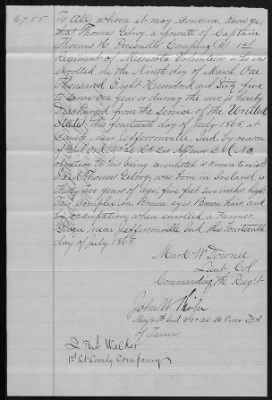 6755
To All whom it may Concern Know ye
that Thomas Gilroy a private of Captain
Thomas H Pressnell's Company (B) 1st
Regiment of Minnesota Volunteers who was
enrolled on the Ninth day of March One
Thousand Eight Hundred and Sixty five
to serve One years or during the war, is hereby
Discharged from the Service of the United
States, this fourteenth day of July 1865, at
Camp Near Jeffersonville Ind. by reason
of
objection to his being re-enlisted is known to exist
Said Thomas Gilroy was born in Ireland, is
thirty two years of age, five feet two inches high
Fair Complexion Brown eyes Brown hair, and
by occupation when enrolled a Farmer.
Given near Jeffersonville Ind this fourteenth
day of July 1865
Mark W Downie
Lieut Col
Commanding the Regt
John W
of Tenn
Walker
1st Lt Comdg Company